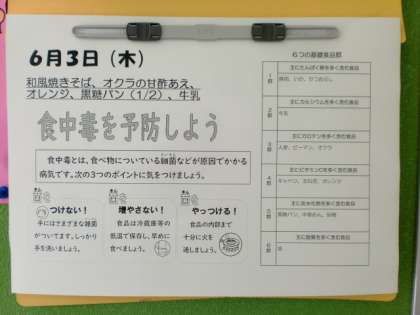 6月3日（木）
和風焼きそば、オクラの甘酢あえ、
オレンジ、黒糖パン（1/2）、牛乳
食中毒を予防しよう
食中毒とは、食べ物についている細菌などが原因でかかる
病気です。次の3つのポイントに気をつけましょう。
つけない！
手にはさまざまな雑菌
がついてます。しっかり
手を洗いましょう。
増やさない！
食品は冷蔵庫等の
低温で保存し、早めに
食べましょう。
やっつける！
食品の内部まで
十分に火を
通しましょう。
6つの基礎食品群
1群
主にたんぱく質を多く含む食品
2群
主にカルシウムを多く含む食品
牛乳
3群
主にカロテンを多く含む食品
人参、ピーマン、オクラ
4群
主にビタミンCを多く含む食品
キャベツ、玉ねぎ、オレンジ
5群
主に炭水化物を多く含む食品
黒糖パン、中華めん、砂糖
6群
主に脂質を多く含む食品
油